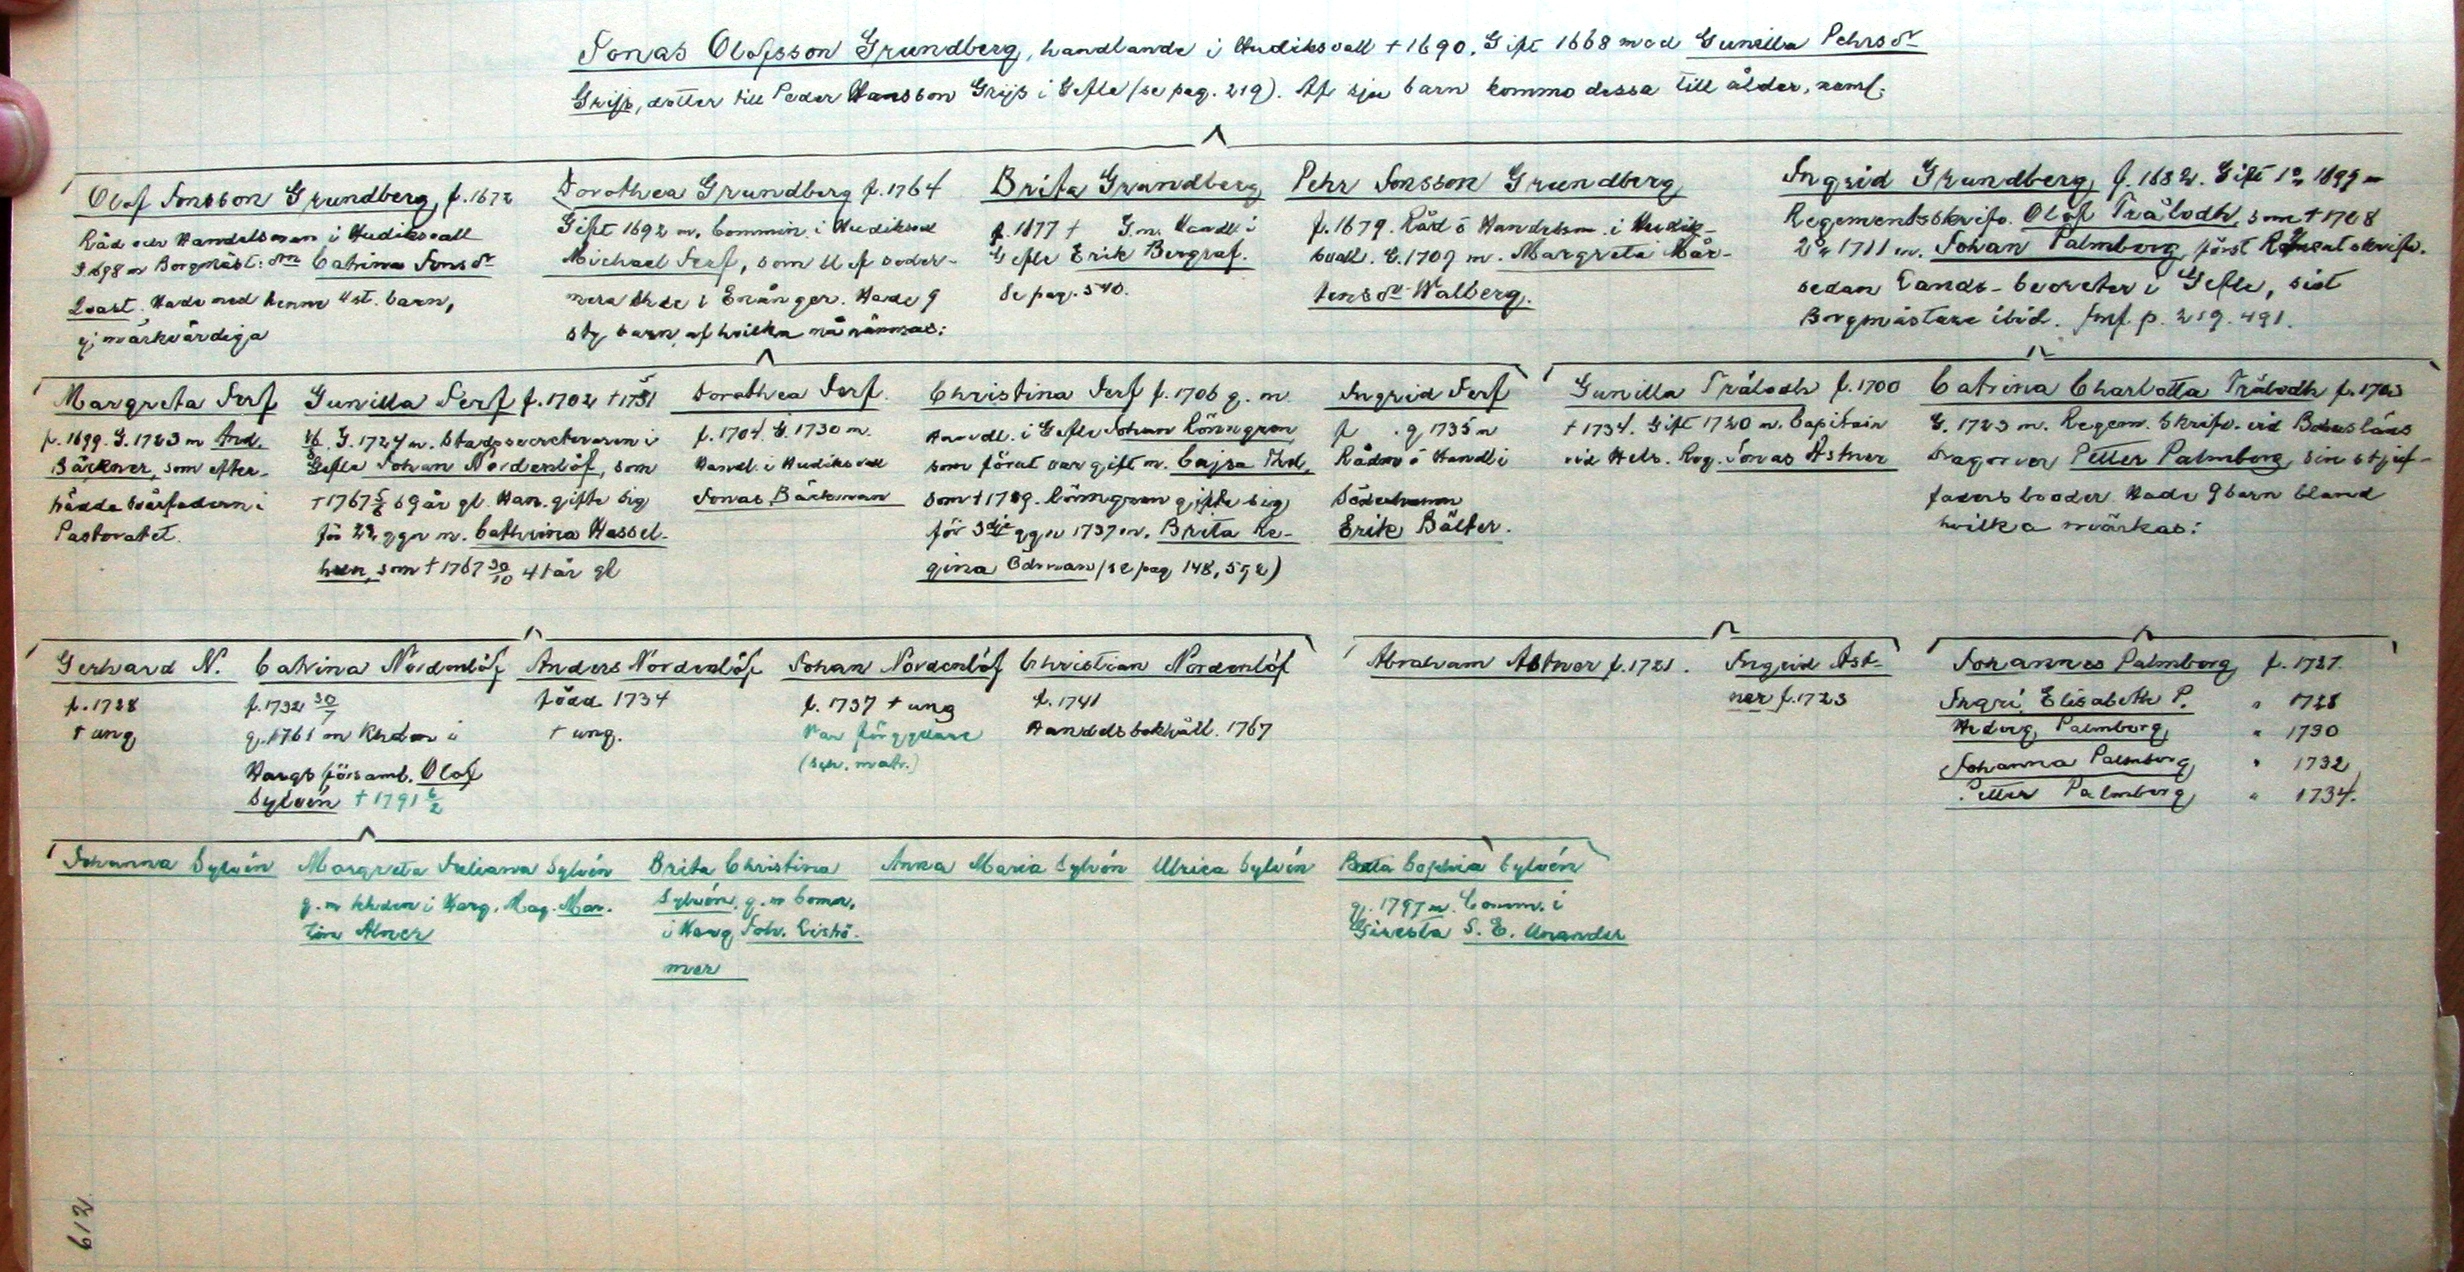 Jonas Olofsson Grundberg, handlande i Hudiksvall † 1690. Gift 1668 med Gunilla Pehrsdr
Grijs, dotter till Peder Hansson Grijs i Gefle (se pag. 219). Af sju barn kommo dessa till ålder, neml:
Olof Jonsson Grundberg, f. 1672
Råd och Handelsman i Hudiksvall
G 1698 m Borgmäst: dn Catrina Jonsdr
Qvast. Hade med henne 4 st. barn,
ej märkvärdiga
Dorothea Grundberg f. 1764
Gift 1692 m. Commin. i Hudiksvall
Michael Ferf, som blef seder-
mera Khde i Enånger. Hade 9
st. barn af hvilka nå nämnas:
Brita Grundberg
f. 1677 † G. m. Handl. i
Gefle Erik Bergraf.
Se pag. 540.
Pehr Jonsson Grundberg
f. 1679. Råd o Handelsm. i Hudik-
svall. G. 1709 m. Margreta Mår-
tensdr Walberg.
Ingrid Grundberg, f. 1682. Gift 1o 1699 m
Regementsskrifv. Olof Trälodh, som † 1708
2o 1711 m. Johan Palmberg, först skrifv.
sedan Lands-Secreter i Gefle, sist
Borgmästare ibid. Jmf. p. 219. 491.
Margreta Ferf
f. 1699. G. 1723 m And.
Bäckner, som efter-
trädde Svärfadern i
Pastoratet.
Gunilla Ferf f. 1702 † 1751
G. 1724 m. Stadssecreteraren i
Gefle Johan Nordenlöf, som
† 1767 5/2 69 år gl. Han gifte sig
för 2dra ggn m. Cathrina Hassel-
huhn, som † 1767 30/10 41 år gl
Dorothea Ferf.
f. 1704. G. 1730 m.
Handl. i Hudiksvall
Jonas Bäckman
Christina Ferf f. 1706 g. m
Handl. i Gefle Johan Rönngren,
som förut var gift m. Cajsa Thel,
som † 1729. Rönngren gifte sig
för 3dje ggn 1737 m. Brita Re-
gina Ödman (se pag 148, 592)
Ingrid Ferf
f . g 1735 m
Rådm o Handl i
Söderhamn
Erik Bälter.
Gunilla Trälodh f. 1700
† 1734. Gift 1720 m. Capitain
vid Hels. Reg. Jonas Astner
Catrina Charlotta Trälodh f. 1703
G. 1723 m. Regem. Skrifv. vid Bohusläns
Dragoner Petter Palmberg, sin styf-
faders broder. Hade 9 barn bland
hvilka märkas:
Gerhard N.
f. 1728
† ung
Catrina Nordenlöf
f. 1732 30/7
g. 1761 m Khden i
Hargs församl. Olof
Sylvén † 1791 6/2
Anders Nordenlöf
född 1734
† ung.
Johan Nordenlöf
f. 1737 † ung
Var förgyllare
(sch. matr.)
Christian Nordenlöf
f. 1741
Handelsbokhåll. 1767
Abraham Astner f. 1721.
Ingrid Ast-
ner f. 1723
Johannes Palmberg f. 1727.
Ingri Elisabeth P. " 1728
Hedvig Palmberg " 1730
Johanna Palmberg " 1732
Petter Palmberg " 1734.
Johanna Sylvén
Margreta Juliana Sylvén
g. m khden i Harg, Mag. Mar-
tin Alner
Brita Christina
Sylvén. g. m Comm.
i Harg Joh. Lisstö-
mer
Anna Maria Sylvén
Ulrica Sylvén
Beata Sophia Sylvén
g. 1797 m. Comm. i
Giresta S. E. Unander
612.